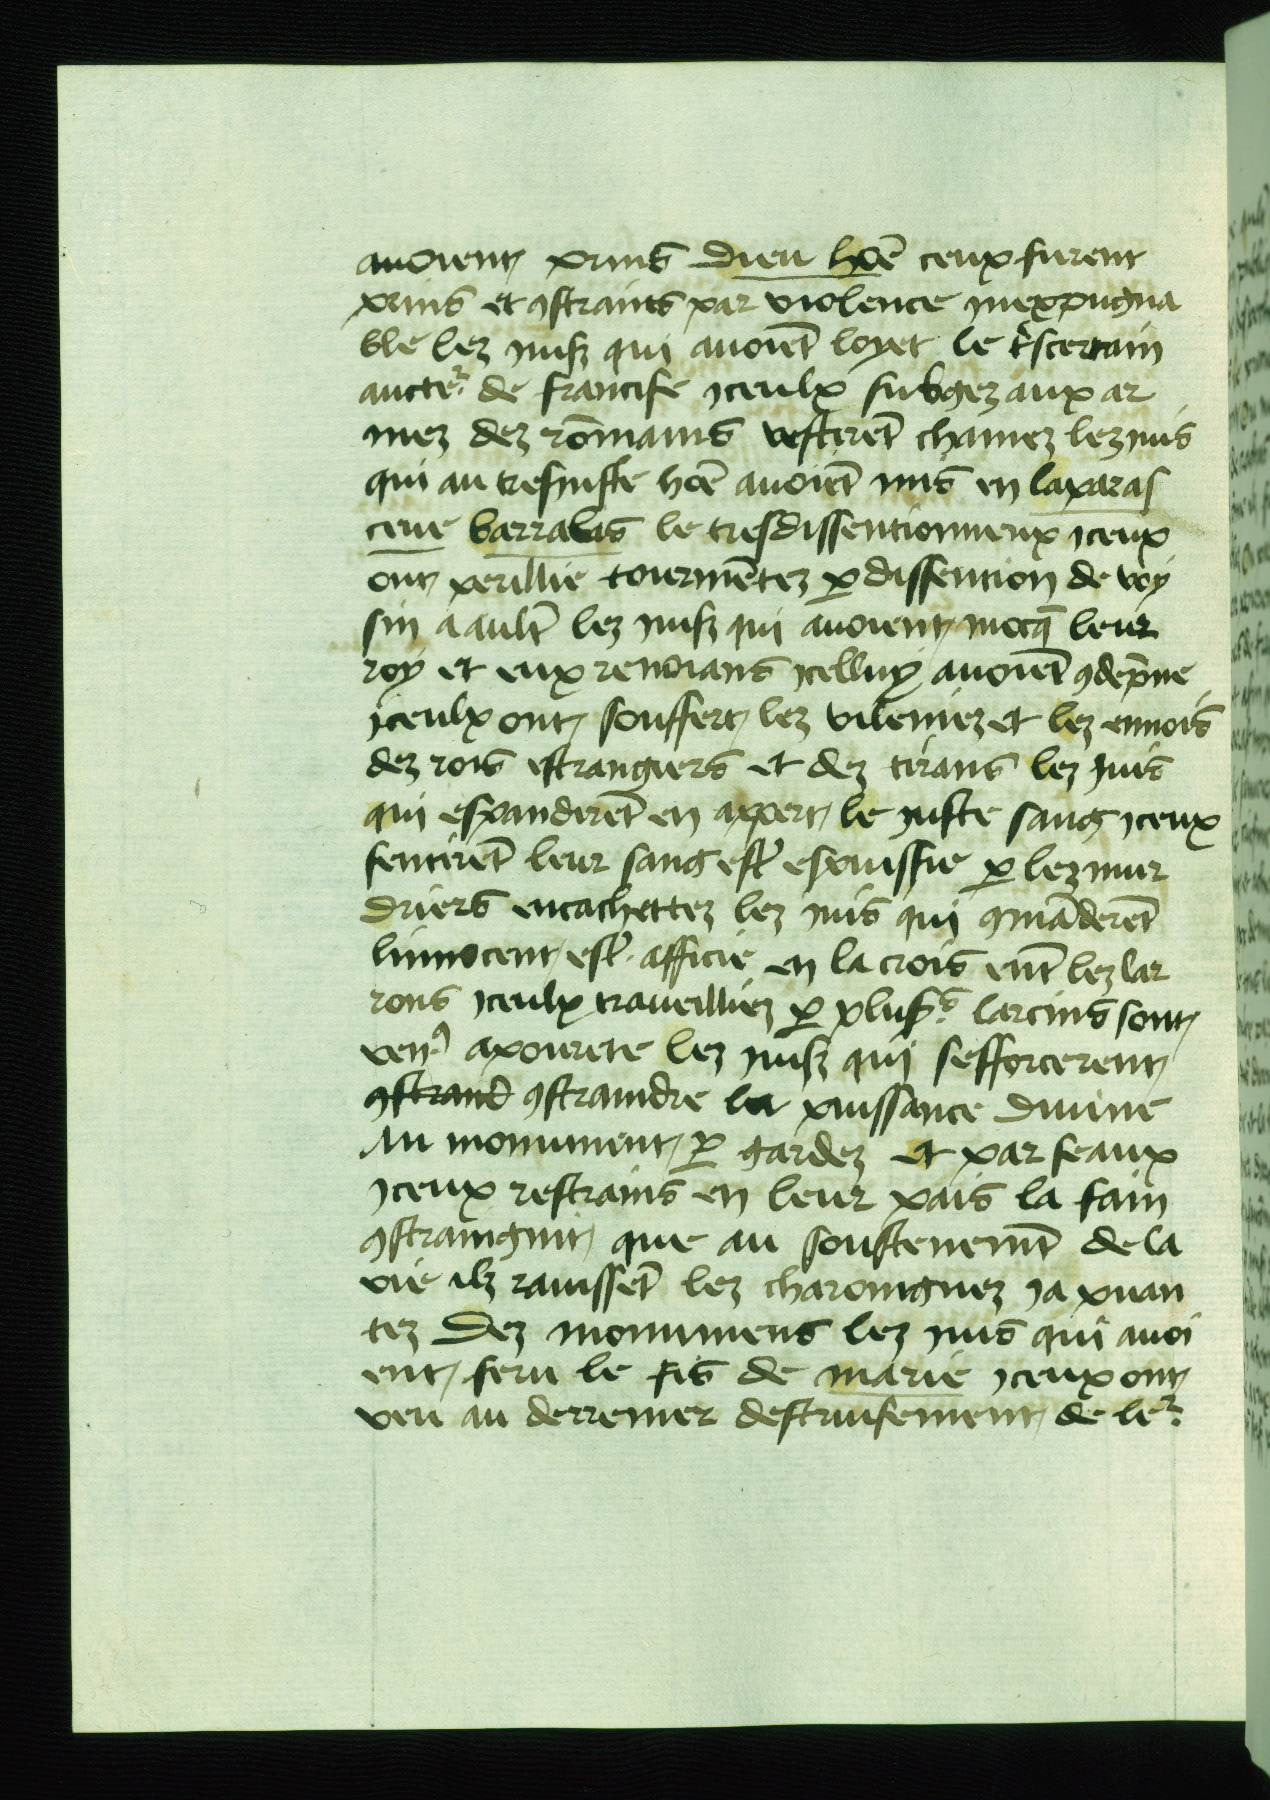 auoient prins dieu hōe ceux furent
prins et ꝯstrains par violence inexpugna
ble lez iuifz qui auoiēt loyet le tͬscertain
aucteͬ de francise iceulx subgez aux ar
mez dez rōmains vestirēt chainez lez iuis
qui au tresiuste hōe auoiēt mis en laparas
ceue barrabas le tresdissentionneux iceux
ont perillie tourmētez ꝑ dissention de voy
sin a aultͬ lez iuifz qui auoient mocq̄ leur
roy et eux renoians icelluy auoiēt ꝯdēpne
iceulx ont souffert lez vileniez et lez ennois
dez rois estrangiers et dez tirans lez iuis
qui espanderēt en appert le iuste sang iceux
sentirēt leur sang estͬ espuissie ꝑ lez mur
driers encachettez lez iuis qui ꝯmāderēt
linnocent estͬ afficie en la crois entͬ lez lar
rons iceulx traueilliez ꝑ plusͬs larcins sont
venꝰ a pourete lez iuifz qui sefforcerent
ꝯstraind ꝯstraindre la puissance diuine
Au monument ꝑ gardez et par seaux
iceux restrains en leur pais la fain
ꝯstraingnit que au soustenemēt de la
vie ilz rauissēt lez charoingnez ia puan
tez Dez monumens lez iuis qui auoi
ent feru le fis de marie iceux ont
veu au derrenier destruisement de leͬ